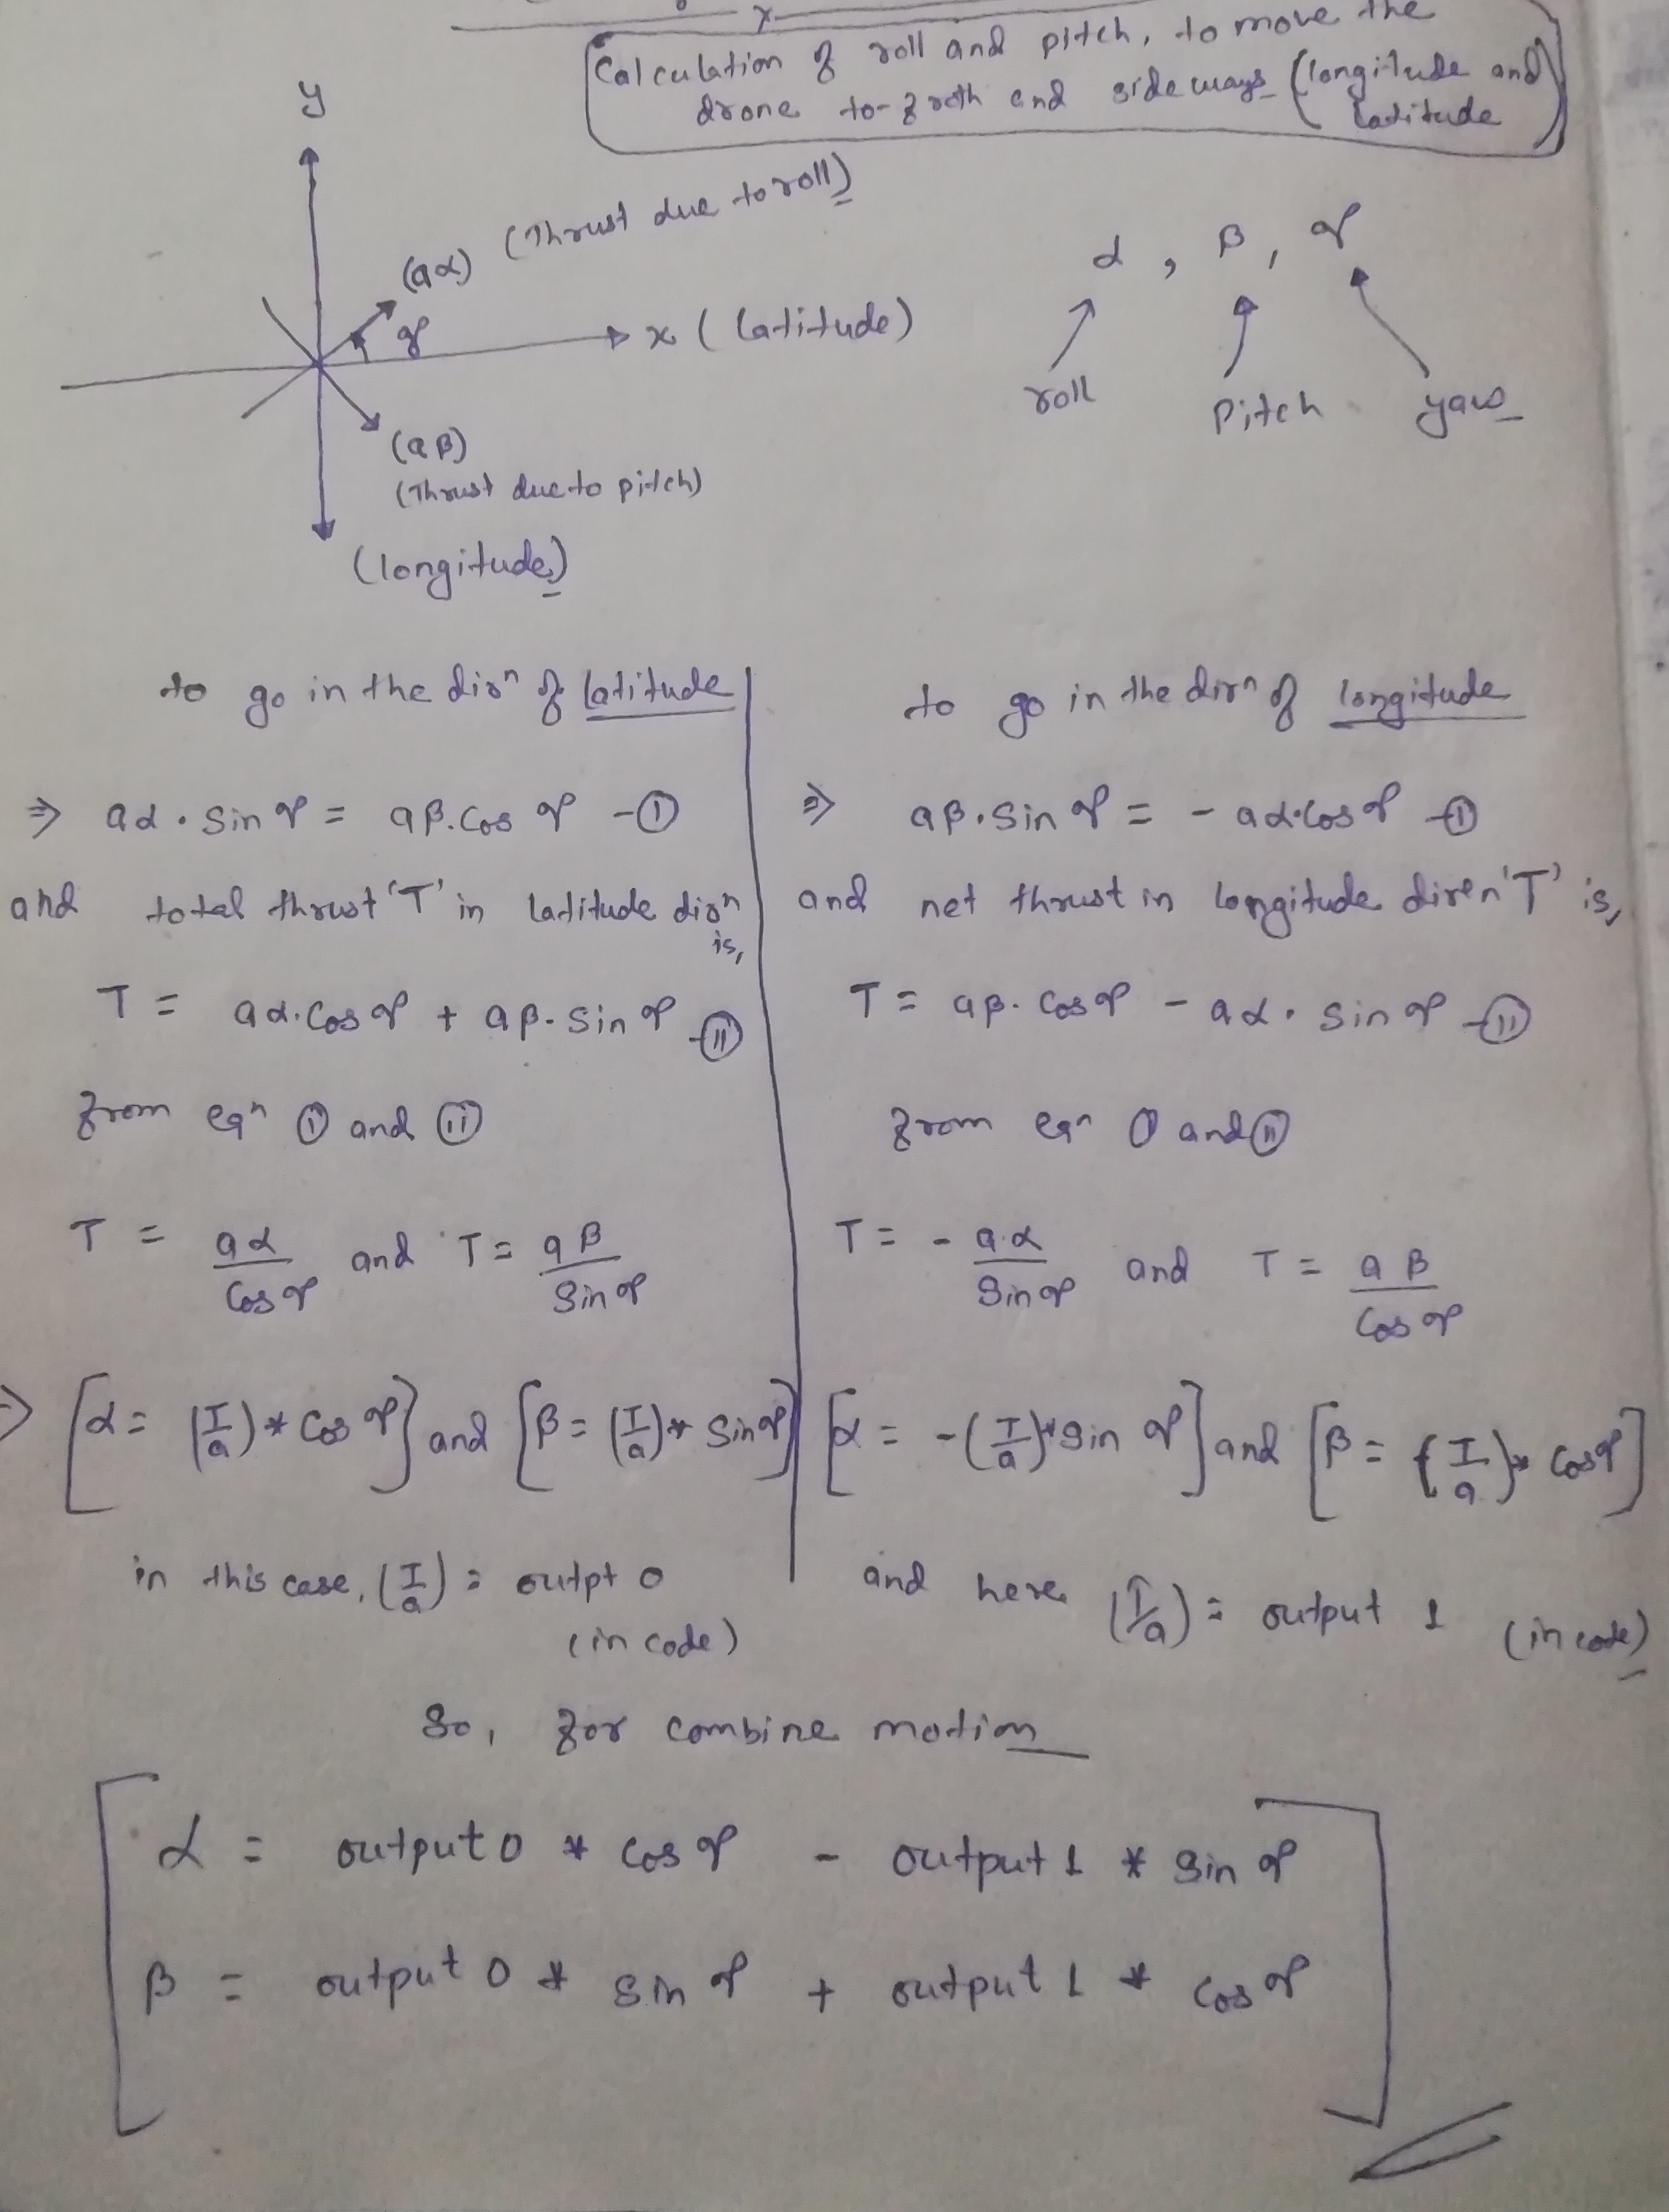 x
Calculation of roll and pitch, to move the
drone to-froth and sideways (longitude and
latitude)
y
(aα) (Thrust due to roll)
γ
x (latitude)
(aβ)
(Thrust due to pitch)
(longitude)
α, β, γ
roll pitch yaw
to go in the dirⁿ of latitude
⇒ aα·sinγ = aβ·cosγ -①
and total thrust 'T' in latitude dirn
is,
T = aα·cosγ + aβ·sinγ -⑪
from eqⁿ ① and ⑪
T = aα/cosγ and T = aβ/sinγ
⇒ [α = (T/a)*cosγ] and [β = (T/a)*sinγ]
in this case, (T/a) = outpt 0
(in code)
to go in the dirⁿ of longitude
⇒ aβ·sinγ = - aα·cosγ -①
and net thrust in longitude diren 'T' is,
T = aβ·cosγ - aα·sinγ -⑪
from eqⁿ ① and ⑪
T = - a·α/sinγ and T = aβ/cosγ
[α = -(T/a)*sinγ] and [β = (T/a)*cosγ]
and here (T/a) = output 1 (in code)
So, for combine motion
α = output0 * cosγ - output1 * sinγ
β = output0 * sinγ + output1 * cosγ